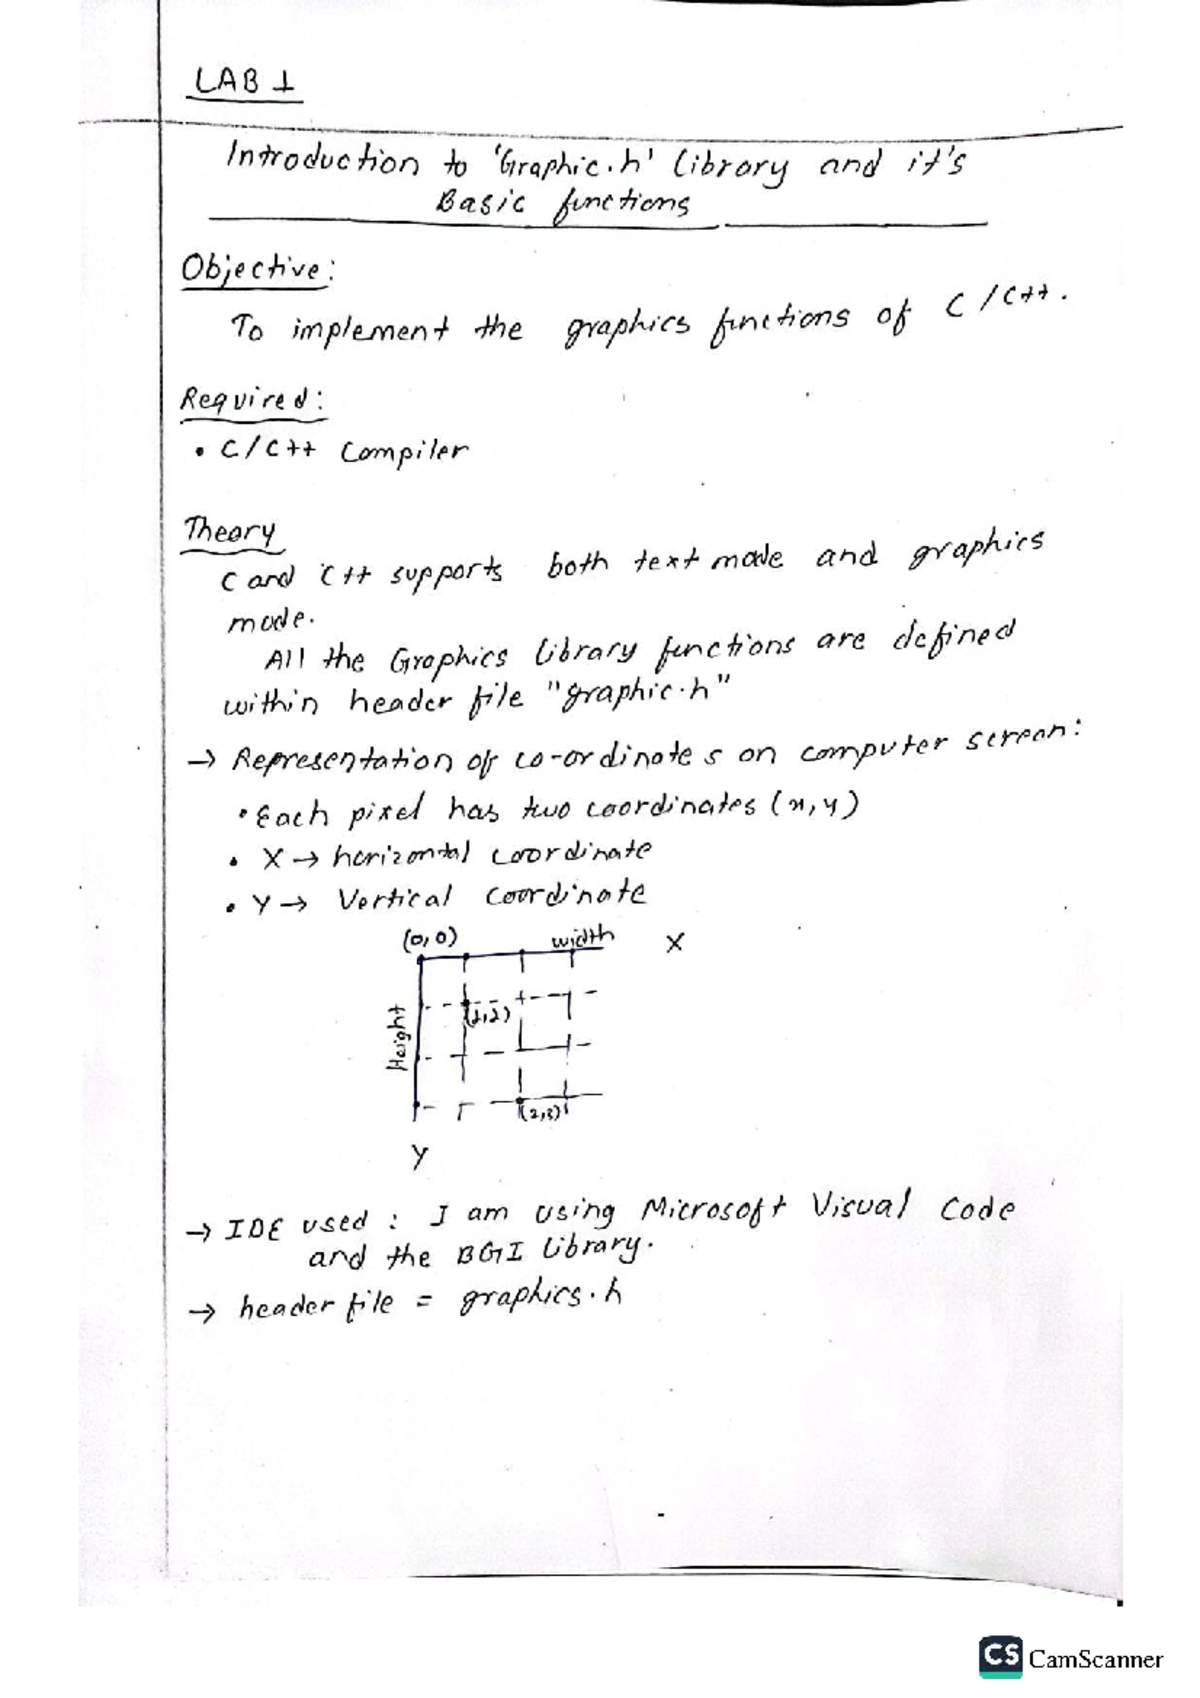 LAB 1
Introduction to 'Graphic.h' Library and it's
Basic functions
Objective:
To implement the graphics functions of C/C++.
Required:
• C/C++ Compiler
Theory
C and C++ supports both text mode and graphics
mode.
All the Graphics Library functions are defined
within header file "graphic.h"
→ Representation of co-ordinates on computer screen:
• Each pixel has two coordinates (x,y)
• X → horizontal coordinate
• Y → Vertical coordinate
(0,0) width X
Height
(2,3)
Y
→ IDE used : I am using Microsoft Visual Code
and the BGI library.
→ header file = graphics.h
CS CamScanner